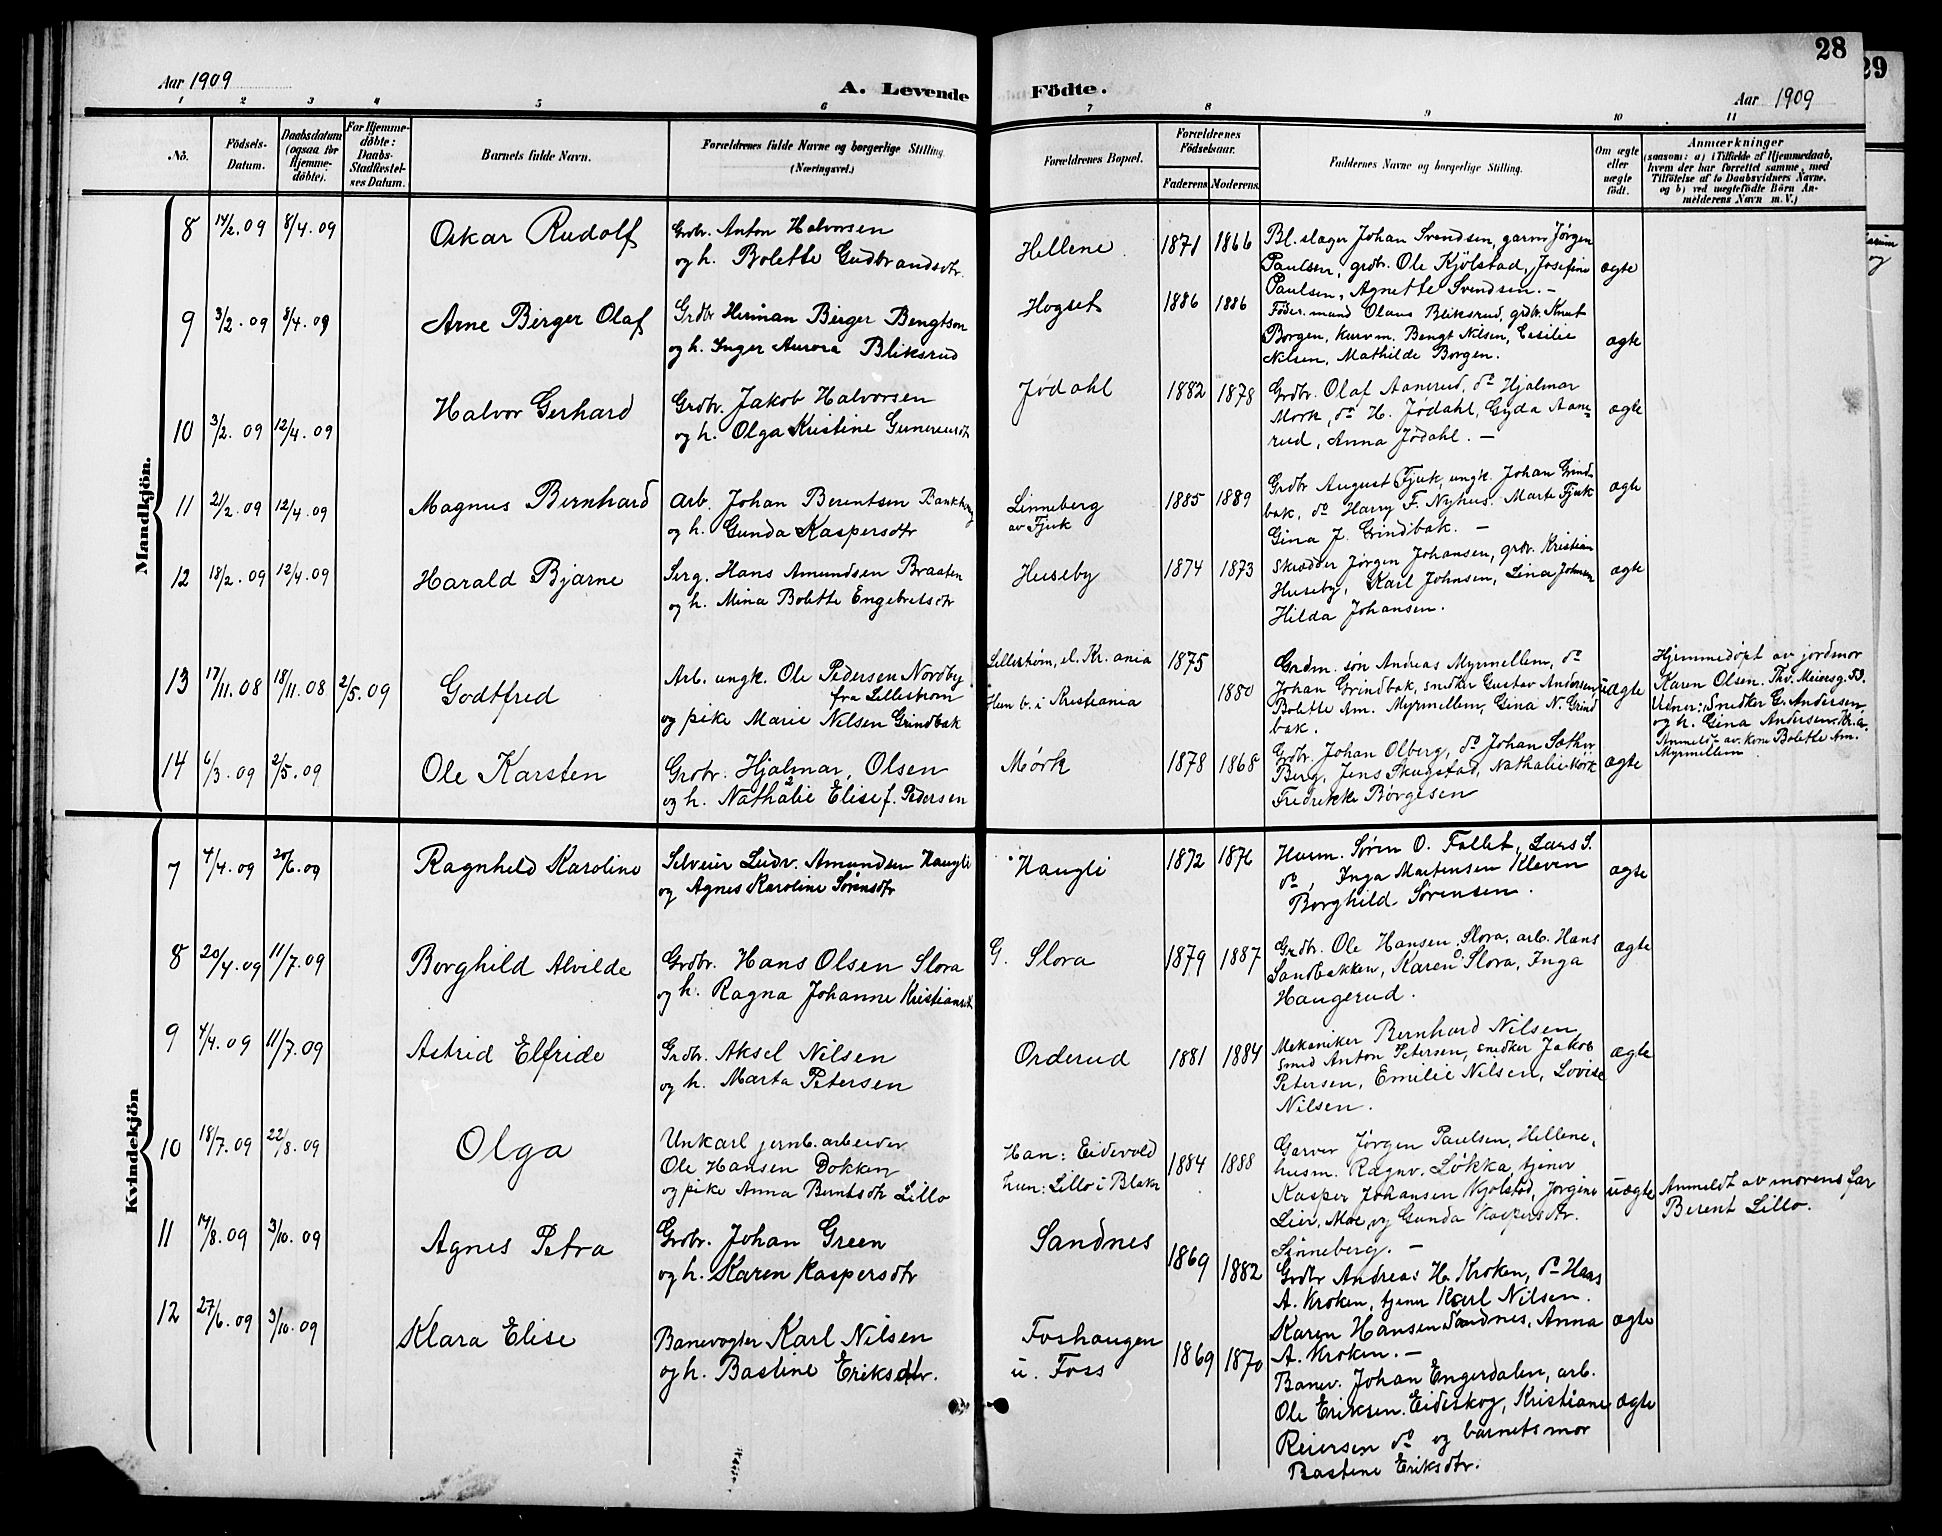 28
29
Aar 1909
A. Levende Födte.
Aar 1909
1 2 3 4 5 6 7 8 9 10 11
No.
Födsels-
Datum.
Daabsdatum
(ogsaa for
Hjemme-
döbte).
For Hjemme-
döbte:
Daabs-
Stadfæstel-
ses Datum.
Barnets fulde Navn.
Forældrenes fulde Navne og borgerlige Stilling
(Næringsvei.)
Forældrenes Bopæl.
Forældrenes
Födselsaar.
Faderens
Moderens
Faddernes Navne og borgerlige Stilling.
Om ægte
eller
uægte
født.
Anmærkninger
(saasom: a) i Tilfælde af Hjemmedaab,
hvem der har forrettet samme, med
Tilföielse af to Daabsvidners Navne,
og b) ved uægtefödte Börn An-
melderens Navn m. V.)
Mandkjön.
8 14/2.09 8/4.09 Oskar Rudolf
Grdbr. Anton Halvorsen
og h. Bolette Gudbrandsdtr.
Hellene 1871 1866
Bl.slager Johan Svendsen, garver Jørgen
Paulsen, grdbr. Ole Kjölstad, Josefine
Paulsen, Agnette Svendsen. -
ægte
9 3/2.09 8/4.09 Arne Birger Olaf
Grdbr Herman Birger Bengtson
og h. Inger Aurora Bliksrud
Hogset 1886 1886
Föder.mand Olaus Bliksrud, grdbr. Knut
Borgen, kurvm. Bengt Nilsen, Cecilie
Nilsen, Mathilde Borgen.
ægte
10 3/2.09 12/4.09 Halvor Gerhard
Grdbr. Jakob Halvorsen
og h. Olga Kristine Gunerensdtr
Jødahl 1882 1878
Grdbr. Olaf Aanerud, do Hjalmar
Mork, do H. Jødahl, Gyda Aane-
rud, Anna Jødahl. -
ægte
11 21/2.09 12/4.09 Magnus Bernhard
Arb. Johan Berentsen
og h. Gunda Kaspersdtr
Linneberg
av Fjuk
1885 1889
Grdbr August Fjuk, ungk. Johan Grind-
bak, do Harry F. Nyhus. Marte Fjuk
Gina J. Grindbak. -
ægte
12 18/2.09 12/4.09 Harald Bjarne
Serg. Hans Amundsen Braaten
og h. Mina Bolette Engebretsdtr
Huseby 1874 1873
Skrædder Jørgen Johansen, grdbr. Kristian
Huseby, Karl Johnsen, Lina Johnsen
Hilda Johansen.
ægte
13 17/11.08 18/11.08 2/5.09 Godtfred
Arb. ungk. Ole Pedersen Nordby
fra Lillestrøm
og pike Marie Nilsen Grindbak
Lillestrøm, el. Kr.ania
Hun b. i Kristiania
1875
1880
Grdm. søn Andreas Myrmellem, do
Johan Grindbak, snedker Gustav Andersen,
Bolette Am. Myrmellem, Gina N. Grind
bak.
uægte
Hjemmedøpt av jordmor
Karen Olsen. Thv. Meiersg. 53.
Vidner: Snedker G. Andersen
og h. Gina Andersen. Kr.a.
Anmeldt av kone Bolette Am.
Myrmellem
14 6/3.09 2/5.09 Ole Karsten
Grdbr. Hjalmar Olsen
og h. Nathalie Elise f. Pedersen
Mørk 1878 1868
Grdbr. Johan Olberg, do Johan
Berg, Jens Skugstad, Nathalie Mörk
Fredrikke Børgesen
ægte
Kvindekjön
7 4/4.09 20/6.09 Ragnhild Karoline
Selveier Ludv. Amundsen Haugli
og Agnes Karoline Sørensdtr
Haugli 1872 1876
Husm. Søren O. Fallet, Lars S.
do, Inga Martensen Kleven
Borghild Sørensen.
ægte
8 20/4.09 11/7.09 Borghild Alvilde
Grdbr. Hans Olsen Slora
og h. Ragna Johanne Kristiansdtr
G. Slora 1879 1887
Grdbr. Ole Hansen Slora, arb. Hans
Sandbakken, Karen O. Slora, Inga
Haugerud.
ægte
9 4/4.09 11/7.09 Astrid Elfride
Grdbr. Aksel Nilsen
og h. Marta Petersen
Orderud 1881 1884
Mekaniker Bernhard Nilsen
smed Anton Petersen, snedker Jakob
Petersen, Emilie Nilsen, Lovise
Nilsen.
ægte
10 18/7.09 22/8.09 Olga
Unkarl jernb.arbeider
Ole Hansen Dokken
og pike Anna Berntsdtr Lillo
Han: Eidsvold
hun: Lillo i Blaker
1884 1888
Garver Jørgen Paulsen, Hellene,
husm. Ragnv. Løkka, tjener
Kasper Johansen Kjolstad, Jørgine
Lier, Moe og Gunda Kaspersdtr.
Linneberg. -
uægte
Anmeldt av morens far
Berent Lillo.
11 14/8.09 3/10.09 Agnes Petra
Grdbr. Johan Green
og h. Karen Kaspersdtr
Sandnes 1869 1882
Grdbr Andreas H. Kroken, do Hans
A. Kroken, tjener Karl Nilsen.
Karen Hansen Sandnes, Anna
A. Kroken. -
ægte
12 27/6.09 3/10.09 Klara Elise
Banevogter Karl Nilsen
og h. Bastine Eriksdtr.
Foshaugen
u. Foss
1869 1870
Banev. Johan Engerdalen, arb.
Ole Eriksen Eidskog, Kristiane
Reiersen do og barnets mor
Bastine Eriksdtr.
ægte